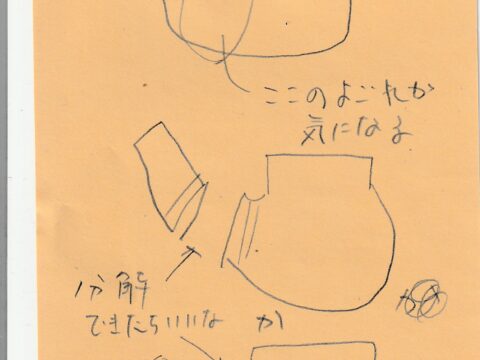 ここのよごれが
気になる
分解
できたらいいな
か